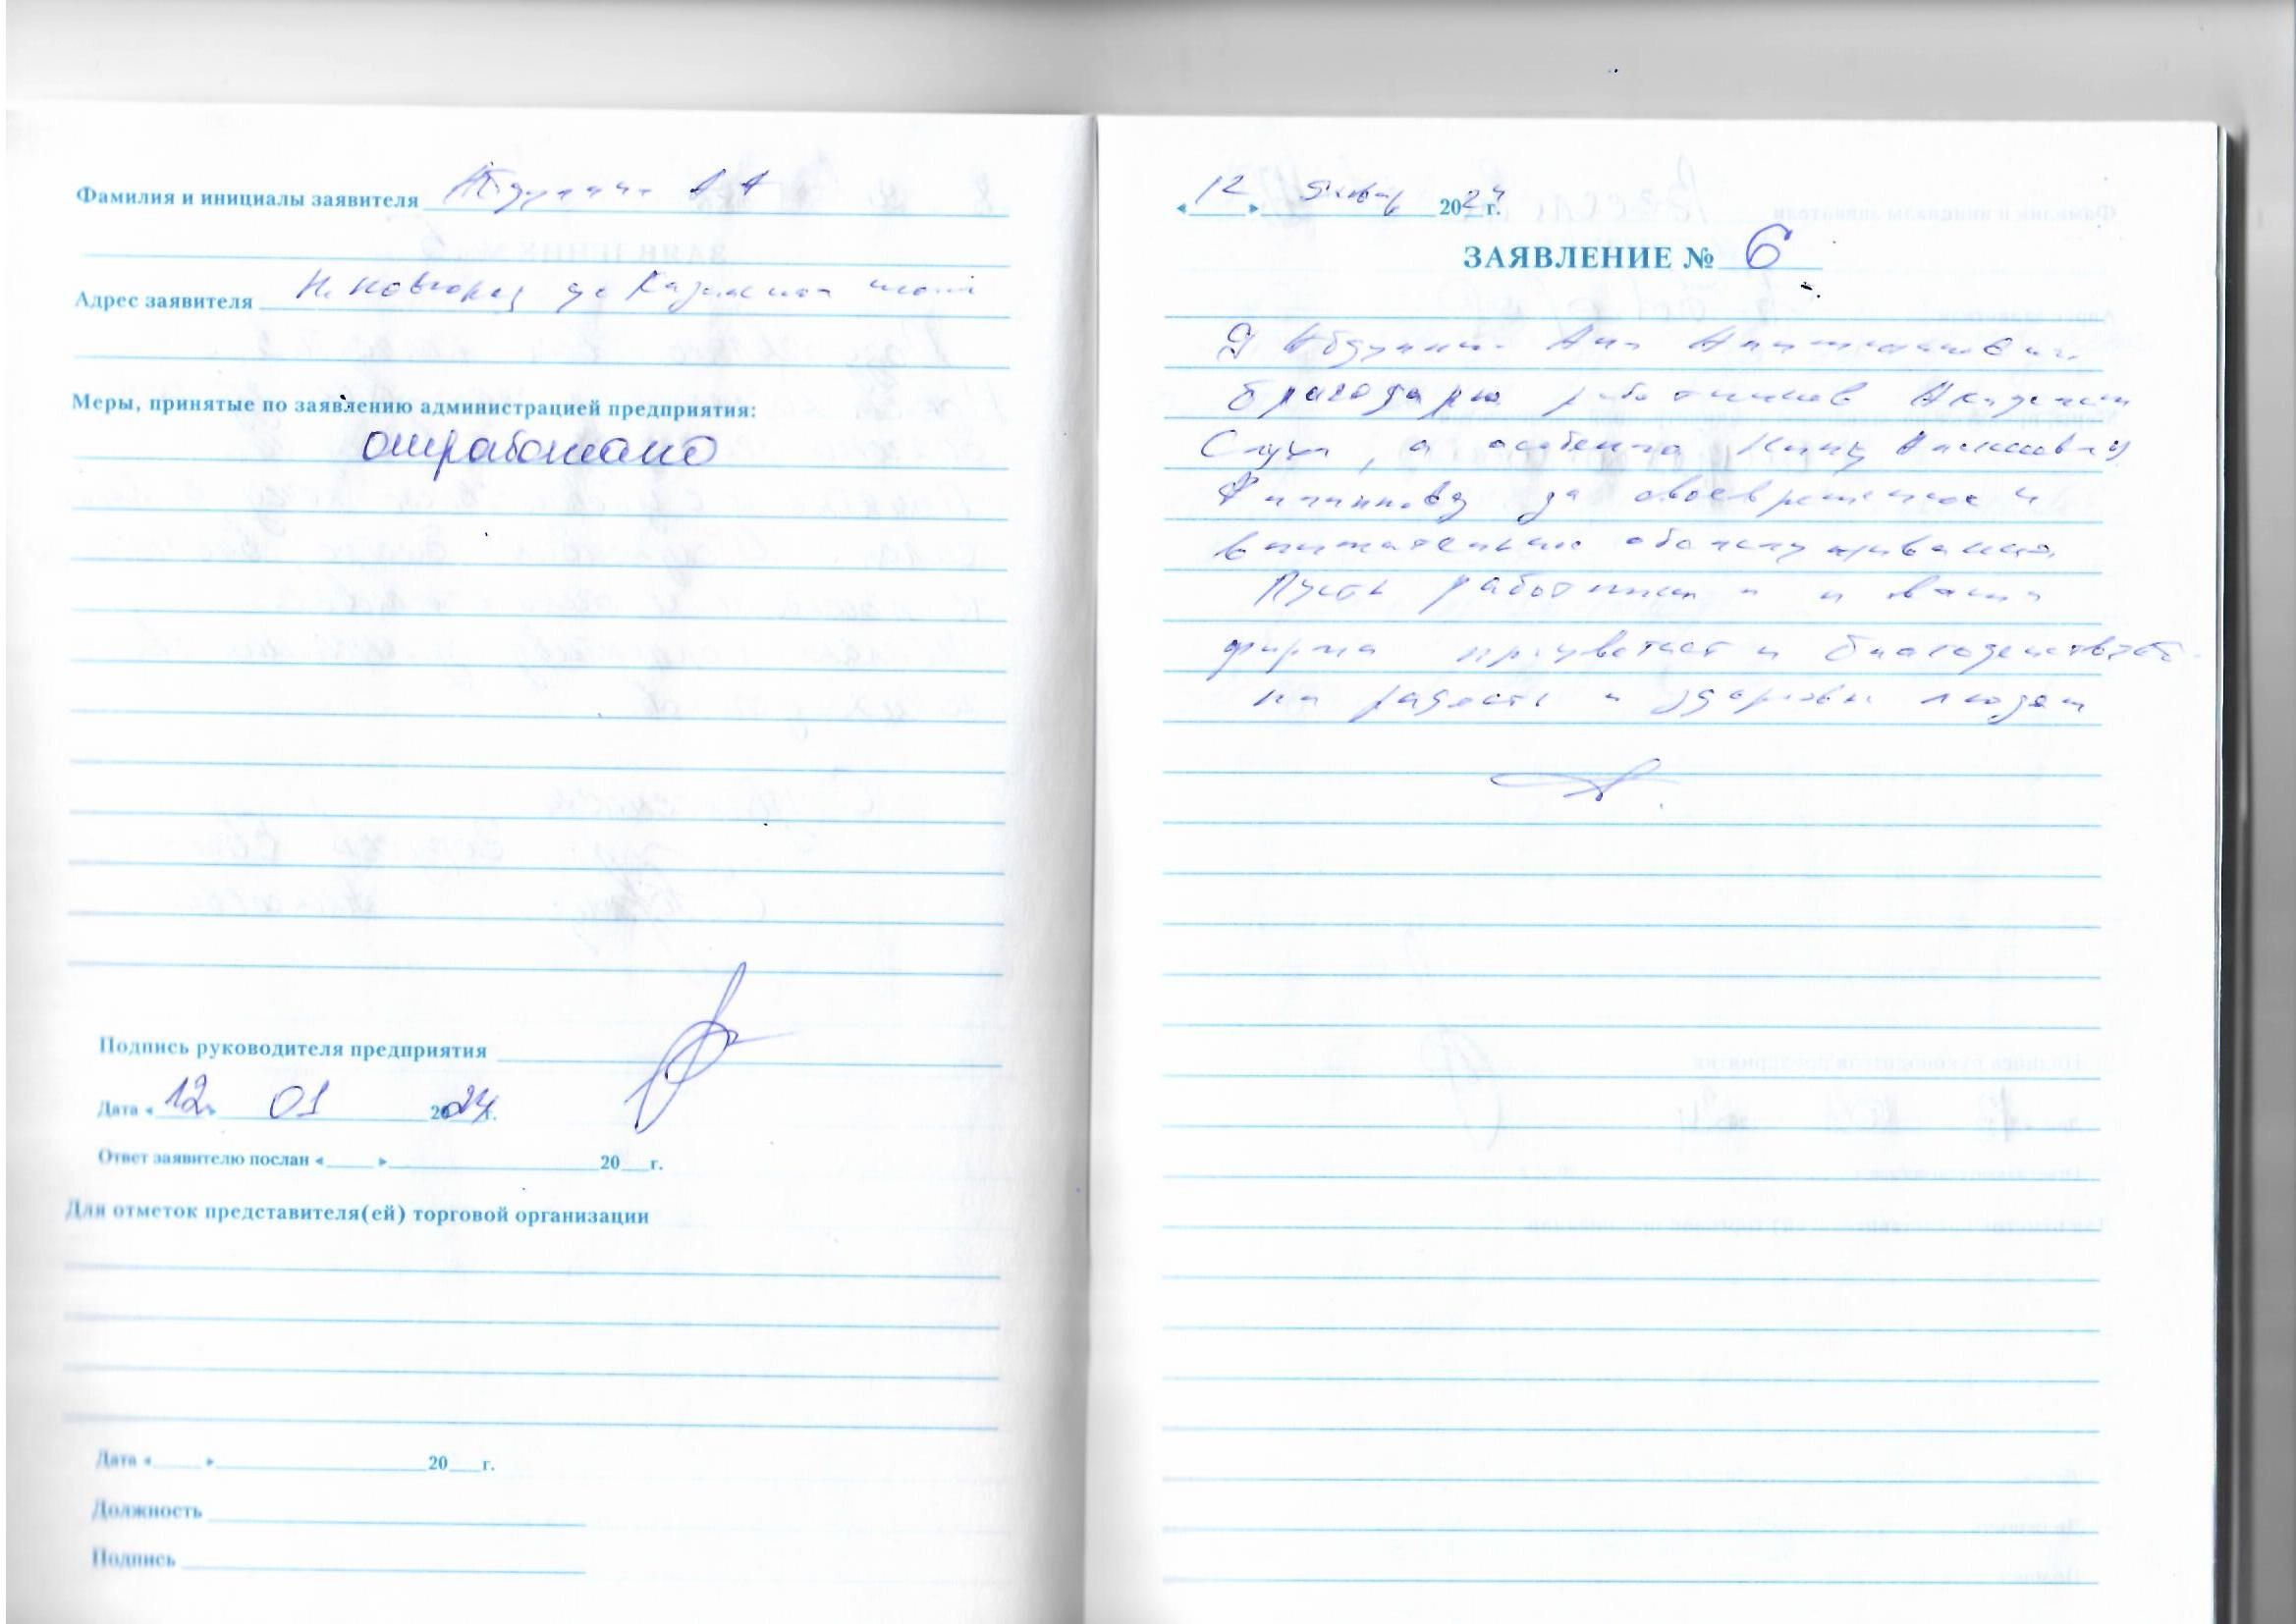 Фамилия и инициалы заявителя Абдулин А А
Адрес заявителя Н. Новгород
Меры, принятые по заявлению администрацией предприятия:
отработано
Подпись руководителя предприятия
Дата «12» 01 2024г.
Ответ заявителю послан «____» ____ 20__г.
Для отметок представителя(ей) торговой организации
Дата «____» ____ 20__г.
Должность
Подпись
«12» Январ 2024г.
ЗАЯВЛЕНИЕ № 6
Я
благодарю работников Академии
Слуха, а особенно Нину
за своевременное и
внимательное обслуживание.
Пусть работники и ваша
фирма процветает и благоденствует
на радость и здоровье людям